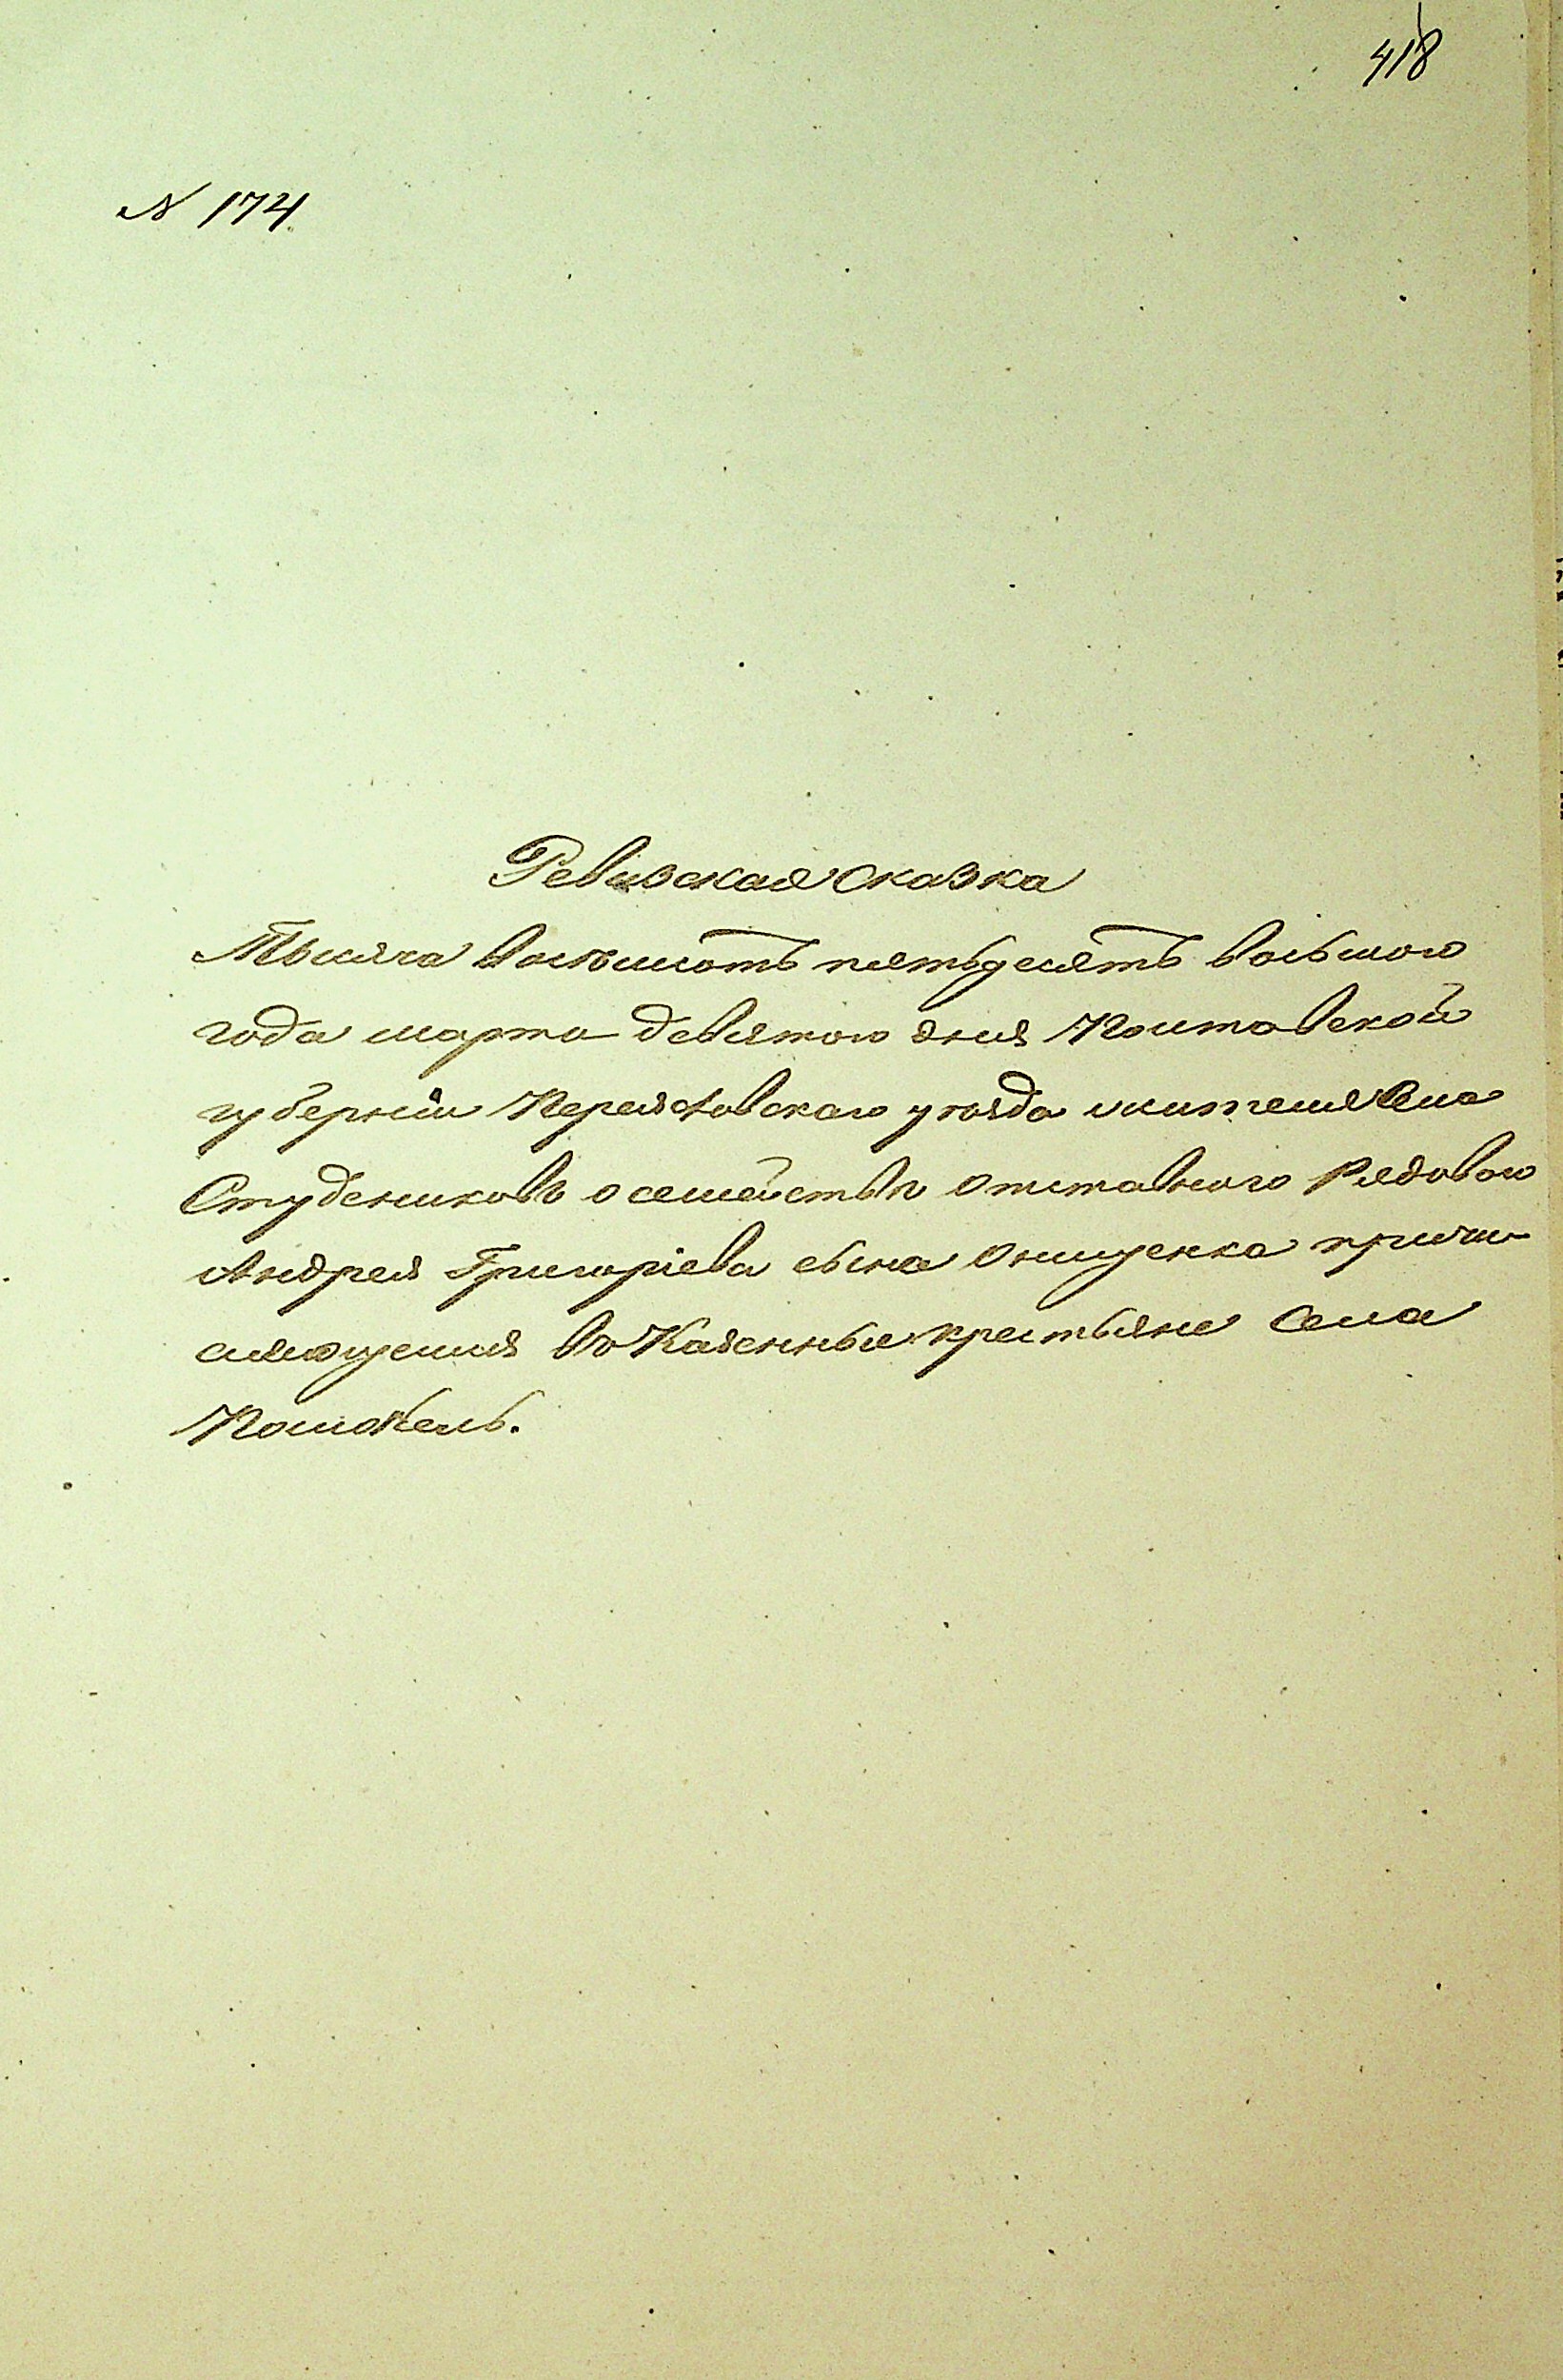 418
N 174.
Ревизская сказка
Тысяча восемьсотъ пятьдесятъ восьмого
года марта девятого дня Полтавской
губерніи Переяславскаго уѣзда жителя села
Студениковъ о семействѣ отставного Рядового
Андрея Григоріева сына Онищенка причи-
сляющегося в Казенные крестьяне Села